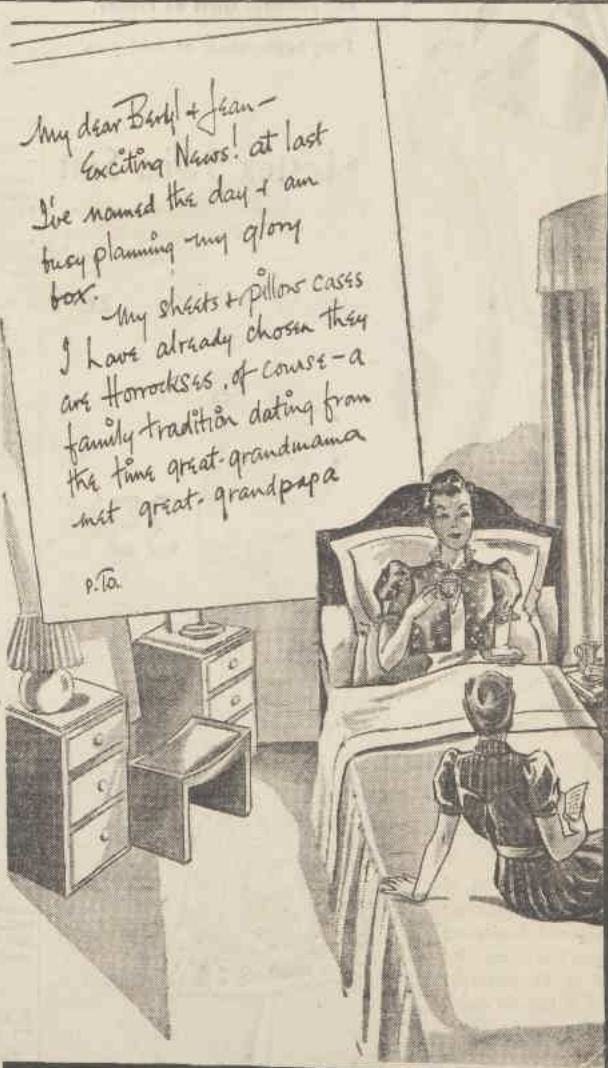 My dear Beryl & Jean—
Exciting News! at last
I've named the day & am
busy planning my glory
box.
My sheets & pillow cases
I have already chosen they
are Horrockses, of course—a
family tradition dating from
the time great-grandmama
met great-grandpapa
P.T.O.